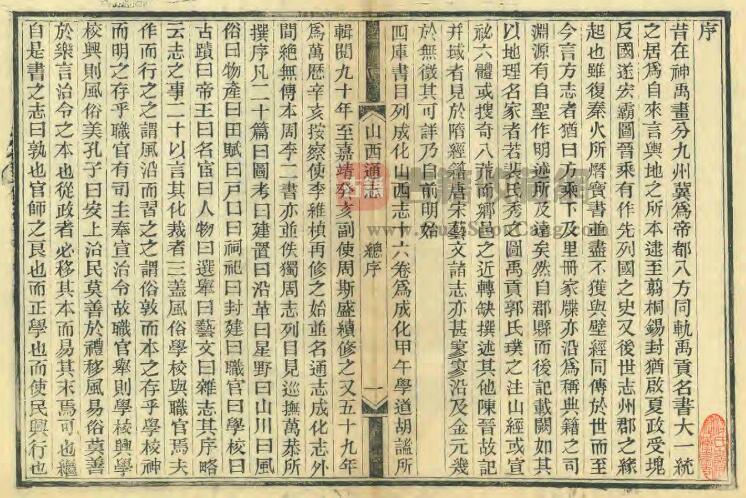 序
昔在神禹畫分九州冀爲帝都八方同軌禹貢名書大一統
之居爲自來言輿地之所本逮至翦桐錫封猶啟夏政受塊
反國遂宏霸圖晉乘有作先列國之史又後世志州郡之緣
起也雖復秦火所燔寳書並盡不獲與壁經同傳於世而至
今言方志者猶曰方乘下及里冊家牒亦沿爲稱典籍之司
淵源有自聖作明述所及遠矣然自郡縣而後記載闕如其
以地理名家者若裴氏秀之圖禹貢郭氏璞之注山經或宣
祕六體或搜奇八荒而鄉邑之近轉缺撰述其他陳晉故記
并域者見於隋經籍唐宋藝文諸志亦甚寥寥沿及金元幾
於無徵其可詳乃自前明始
四庫書目列成化山西志十六卷爲成化甲午學道胡謐所
山西通志 總序 一
輯閱九十年至嘉靖癸亥副使周斯盛續修之又五十九年
爲萬歷辛亥按察使李維楨再修之始並名通志成化志外
間絶無傳本周李二書亦並佚獨周志列目見巡撫萬恭所
撰序凡二十篇曰圖考曰建置曰沿革曰星野曰山川曰風
俗曰物產曰田賦曰戸口曰祠祀曰封建曰職官曰學校曰
古蹟曰帝王曰名宦曰人物曰選舉曰藝文曰雜志其序略
云志之事二十以言其化裁者三蓋風俗學校與職官焉夫
作而行之之謂風沿而習之之謂俗敦而本之存乎學校神
而明之存乎職官有司主奉宣治令故職官舉則學校興學
校興則風俗美孔子曰安上治民莫善於禮移風易俗莫善
於樂言治令之本也從政者必移其本而易其末焉可也繼
自是書之志曰孰也官師之良也而正學也而使民興行也